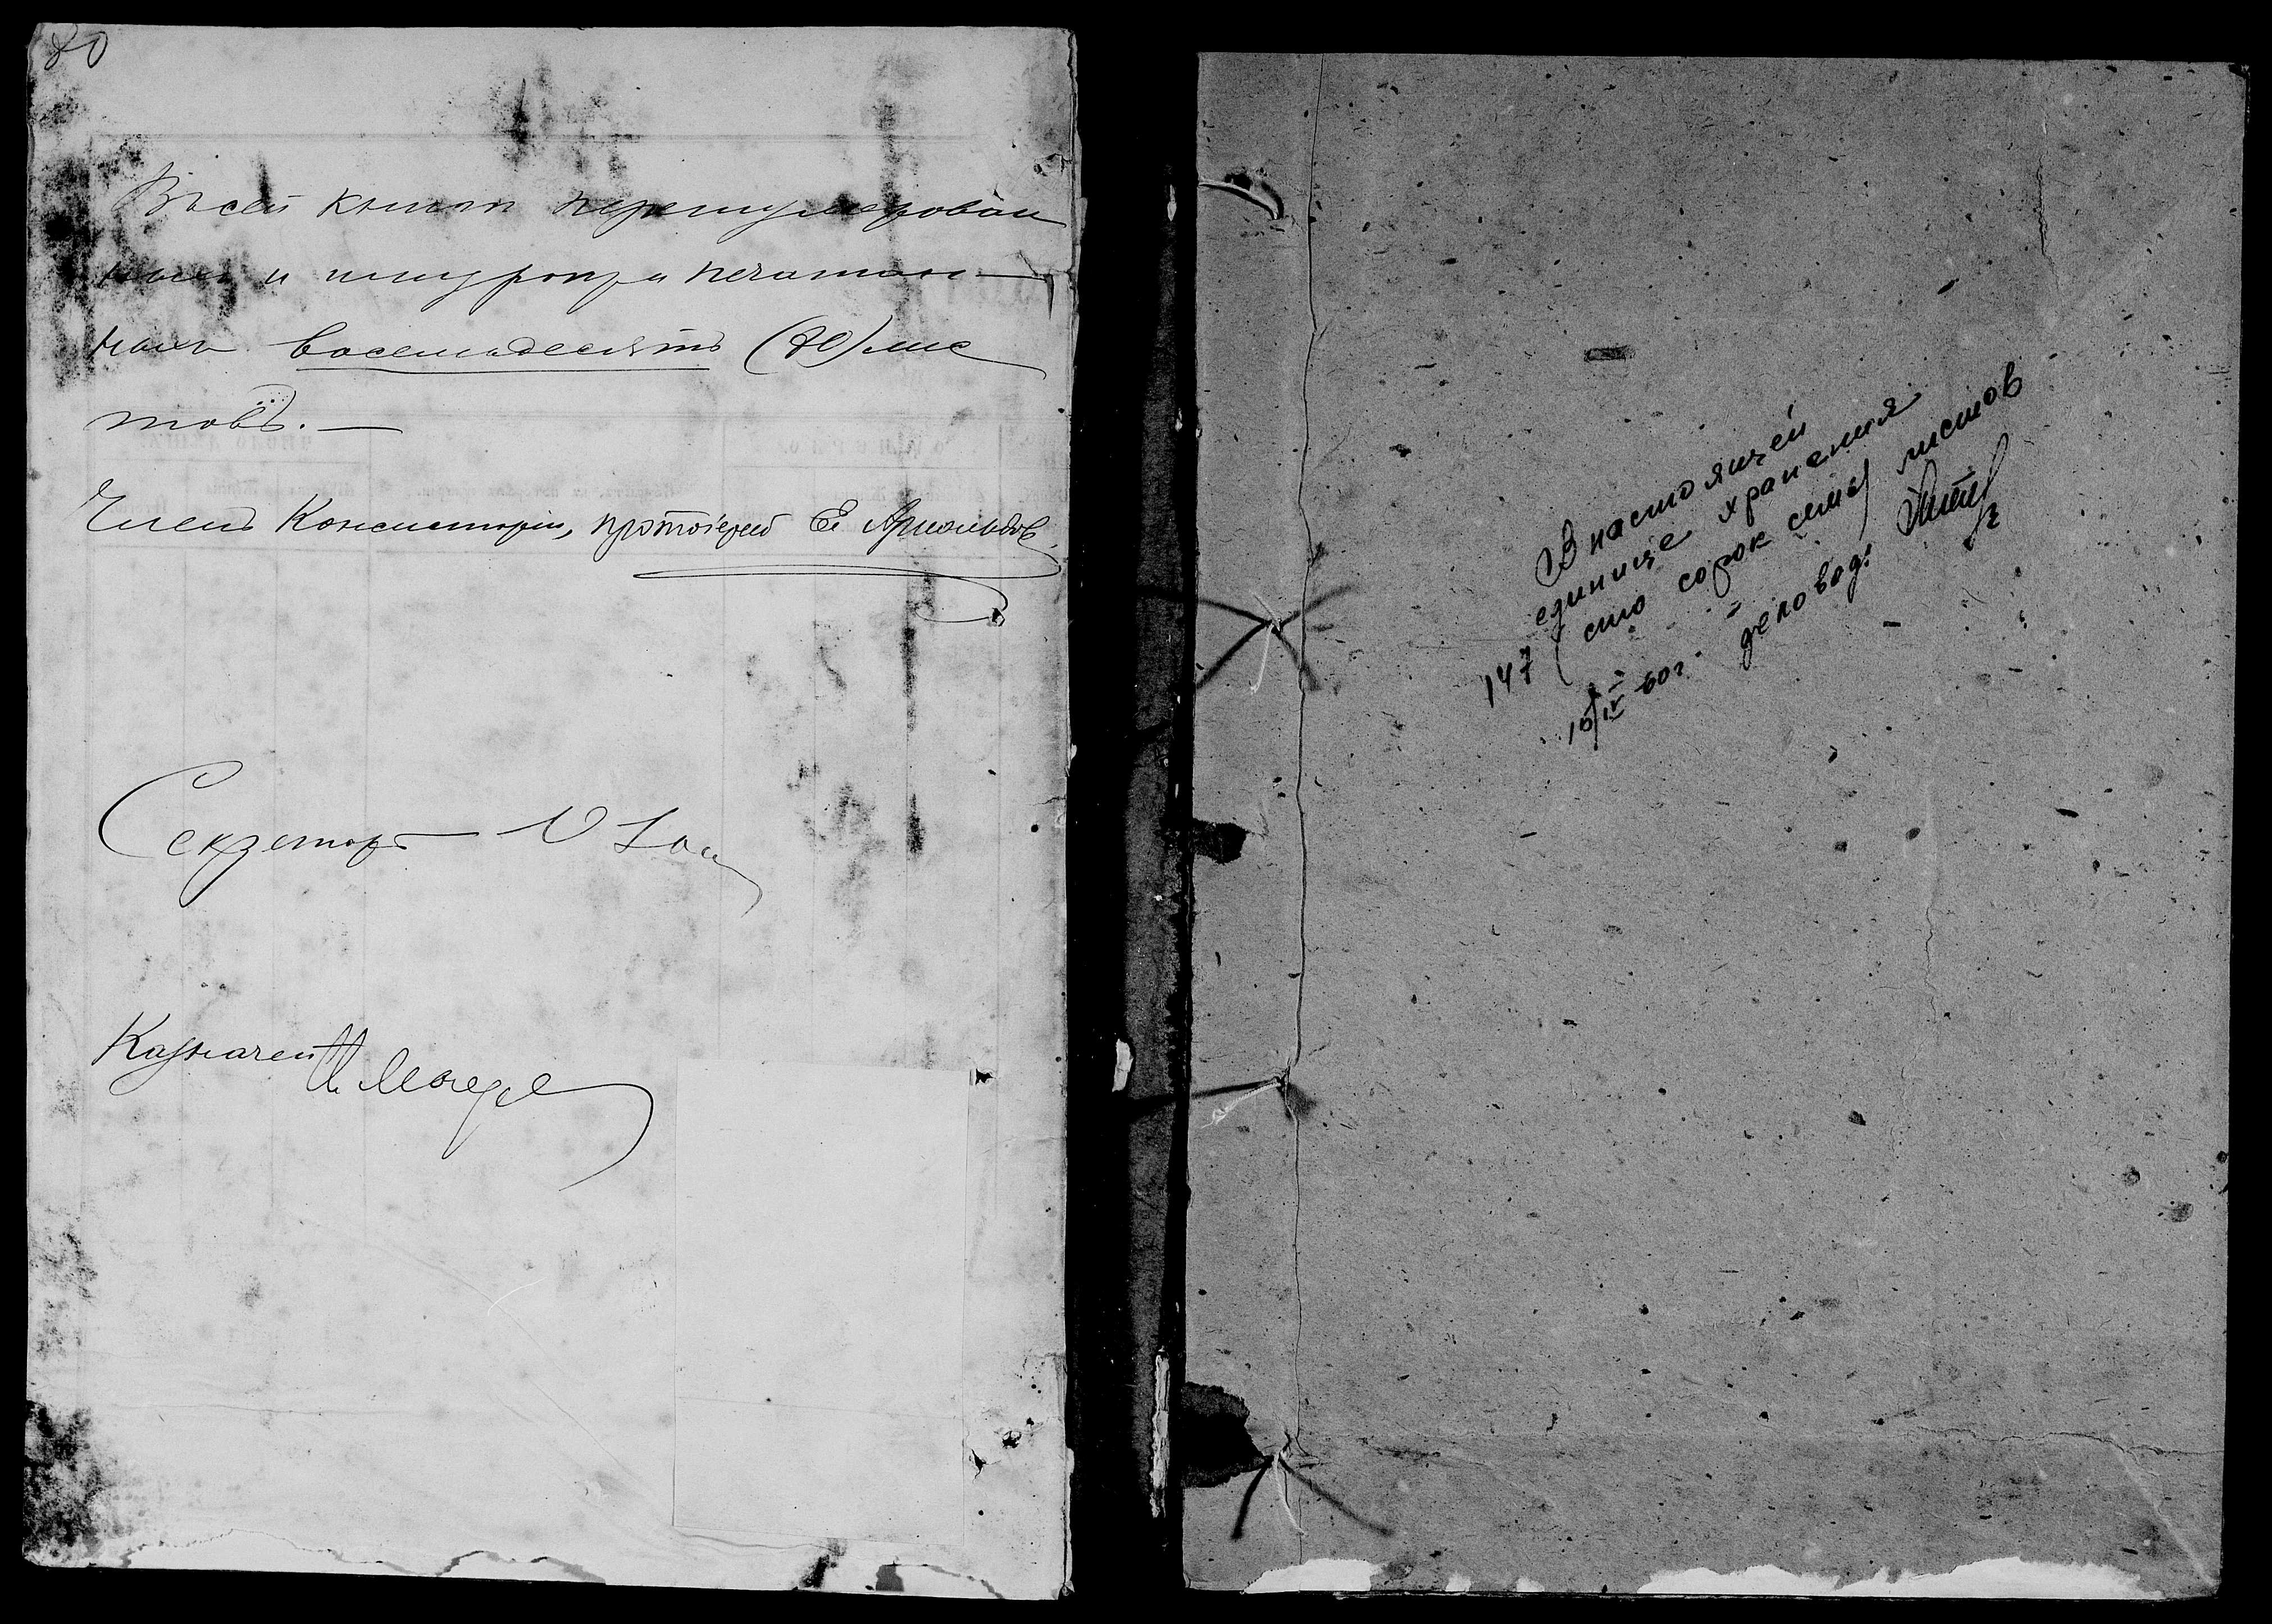 80
Въ сей книгѣ перенумерован
ныхъ и шнуропропечатан—
ныхъ восемьдесятъ (80) лис
товъ.—
Членъ Консисторіи, протоіерей Е. Арнольдовъ
Секретарь
Казначей
В настоящей
единице хранения
147 (сто сорок семь) листов
10/IV 60 г. деловод: